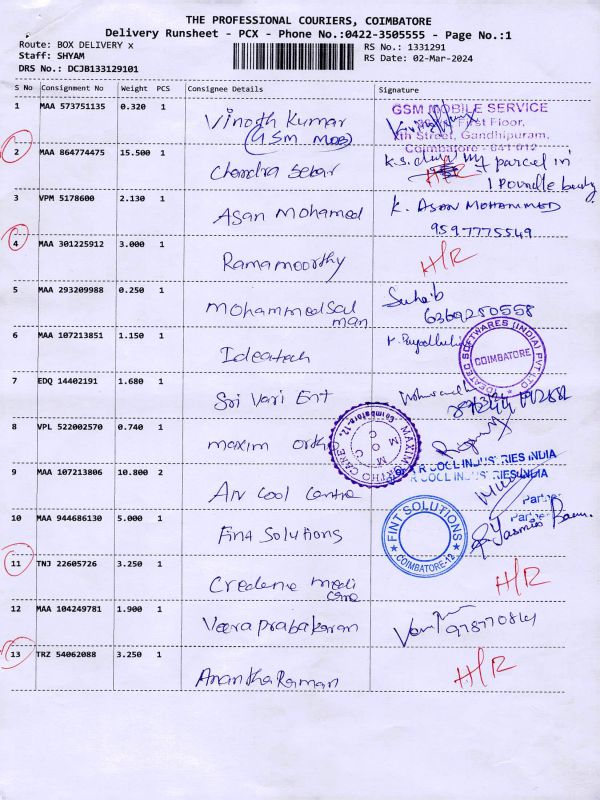 THE PROFESSIONAL COURIERS, COIMBATORE
Delivery Runsheet - PCX - Phone No.:0422-3505555 - Page No.:1
Route: BOX DELIVERY x
RS No.: 1331291
Staff: SHYAM
RS Date: 02-Mar-2024
DRS No.: DCJB133129101
S No Consignment No Weight PCS Consignee Details Signature
1 MAA 573751135 0.320 1 Vinoth Kumar
(GSM MOB)
GSM MOBILE SERVICE
First Floor,
Street, Gandhipuram,
Coimbatore - 641 012
2 MAA 864774475 15.500 1 Chandra Sekar
H/R
parcel in
3 VPM 5178600 2.130 1 Asan Mohamed K. ASAN MOHAMMED
9597775549
4 MAA 301225912 3.000 1 Ramamoorthy H/R
5 MAA 293209988 0.250 1 Mohammedsal
man
Suhaib
6369280558
6 MAA 107213851 1.150 1 Ideatech
IDEATED SOFTWARES (INDIA) PVT LTD
COIMBATORE
7 EDQ 14402191 1.680 1 Sri Vari Ent
8 VPL 522002570 0.740 1 maxim ortho
MAXIM ORTHO CARE
Coimbatore-12.
9 MAA 107213806 10.800 2 Air Cool Centre
R COOL INDUSTRIES INDIA
R COOL INDUSTRIES INDIA
Partner
Partner
10 MAA 944686130 5.000 1 Fint Solutions
FINT SOLUTIONS
COIMBATORE-12
Yasmin Banu.
11 TNJ 22605726 3.250 1 Credence medi
care
H/R
12 MAA 104249781 1.900 1 Veeraprabakaran
13 TRZ 54062088 3.250 1 Anantharaman H/R